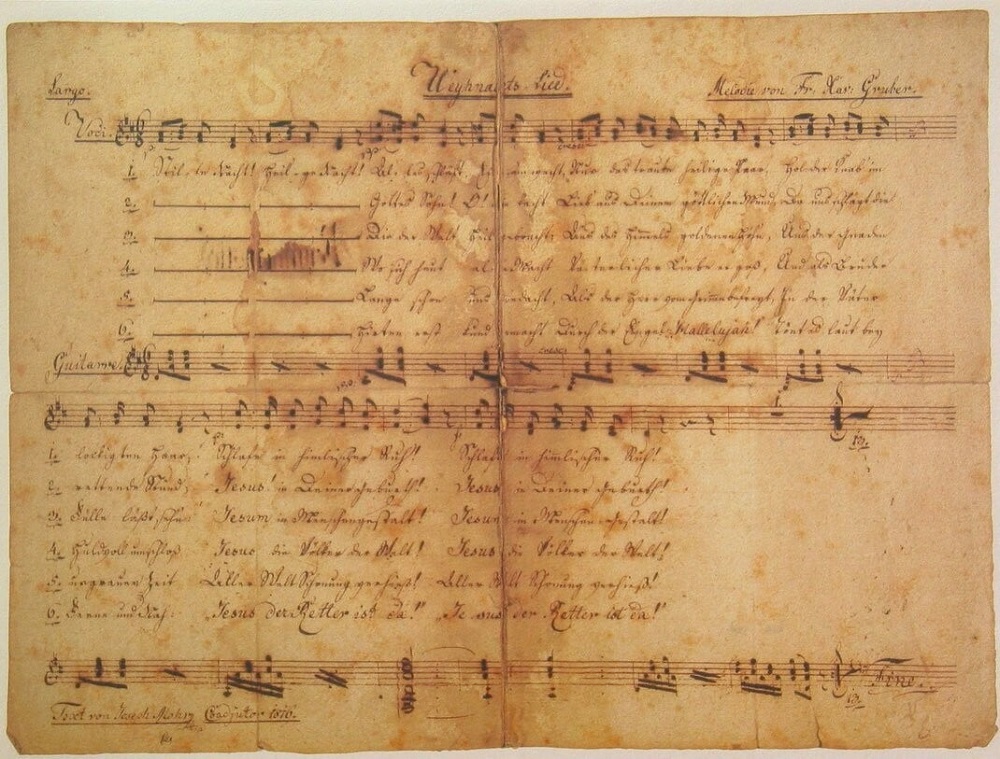 Largo. Weyhnachts-Lied. Melodie von Fr. Xav. Gruber.
Voci.
1. Stil-le Nacht! Heil-ige Nacht! Al-les schläft. Ein-sam wacht Nur das traute heilige Paar. Holder Knab' im
2. Gottes Sohn! O! wie lacht Lieb' aus Deinem göttlichen Mund, Da uns schlägt die
3. Die der Welt Heil gebracht; Aus des Himmels goldenen Höhn, Uns der Gnaden
4. Wo sich heut alle Macht Väterlicher Liebe ergoß, Und als Bruder
5. Lange schon uns bedacht, Als der Herr vom Grimme befreyt, In der Väter
6. Hirten erst kundgemacht Durch der Engel Hallelujah! Tönt es laut bey
cresc:
Guitarre.
1. lockigten Haar; Schlafe in himlischer Ruh! Schlafe in himlischer Ruh!
2. rettende Stund; Jesus! in Deiner Geburth! Jesus in Deiner Geburth!
3. Fülle läßt, sehen Jesum in Menschengestalt! Jesum in Menschengestalt!
4. Huldvoll umschloß Jesus die Völker der Welt! Jesus die Völker der Welt!
5. urgrauer Zeit Aller Welt Schonung verhieß! Aller Welt Schonung verhieß!
6. Ferne und Nah: Jesus der Retter ist da! Jesus der Retter ist da!
Fine.
Text von Joseph Mohr Coadjutor 1816.